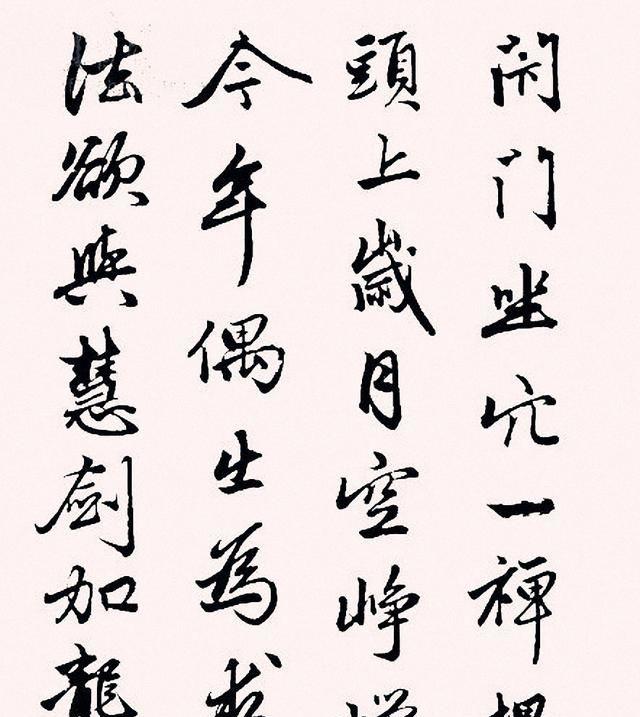 閉門坐穴一禪
頭上歲月空崢
今年偶出為求
法欲與慧劍加